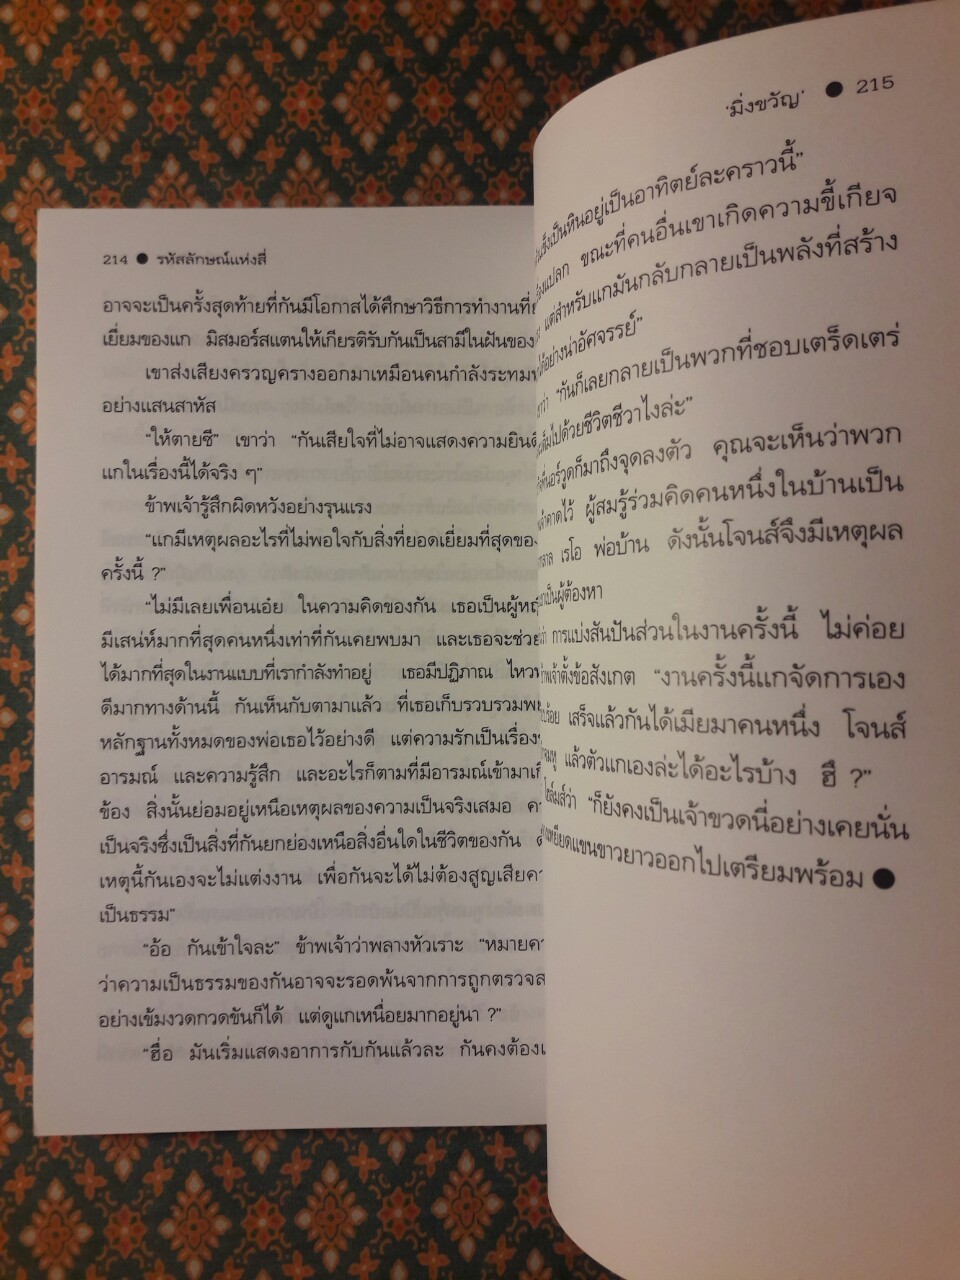 214 ● รหัสลักษณ์แห่งสี่
อาจจะเป็นครั้งสุดท้ายที่กันมีโอกาสได้ศึกษาวิธีการทำงานที่
เยี่ยมของแก มิสมอร์สแตนให้เกียรติรับกันเป็นสามีในฝันของ
เขาส่งเสียงครวญครางออกมาเหมือนคนกำลังระทม
อย่างแสนสาหัส
“ให้ตายซี” เขาว่า “กันเสียใจที่ไม่อาจแสดงความยินดี
แกในเรื่องนี้ได้จริง ๆ”
ข้าพเจ้ารู้สึกผิดหวังอย่างรุนแรง
“แกมีเหตุผลอะไรที่ไม่พอใจกับสิ่งที่ยอดเยี่ยมที่สุดของ
ครั้งนี้ ?”
“ไม่มีเลยเพื่อนเอ๋ย ในความคิดของกัน เธอเป็น
มีเสน่ห์มากที่สุดคนหนึ่งเท่าที่กันเคยพบมา และเธอจะช่วย
ได้มากที่สุดในงานแบบที่เรากำลังทำอยู่ เธอมีปฏิภาณ
ดีมากทางด้านนี้ กันเห็นกับตามาแล้ว ที่เธอเก็บรวบรวม
หลักฐานทั้งหมดของพ่อเธอไว้อย่างดี แต่ความรักเป็นเรื่อง
อารมณ์ และความรู้สึก และอะไรก็ตามที่มีอารมณ์เข้ามา
ข้อง สิ่งนั้นย่อมอยู่เหนือเหตุผลของความเป็นจริงเสมอ
เป็นจริงซึ่งเป็นสิ่งที่กันยกย่องเหนือสิ่งอื่นใดในชีวิตของกัน
เหตุนี้กันเองจะไม่แต่งงาน เพื่อกันจะได้ไม่ต้องสูญเสีย
เป็นธรรม”
“อ้อ กันเข้าใจละ” ข้าพเจ้าว่าพลางหัวเราะ
ว่าความเป็นธรรมของกันอาจจะรอดพ้นจากการถูก
อย่างเข้มงวดกวดขันก็ได้ แต่ดูแกเหนื่อยมากอยู่นา ?”
“ฮื่อ มันเริ่มแสดงอาการกับกันแล้วละ กันคงต้อง
‘มิ่งขวัญ’ ● 215
เป็นหินอยู่เป็นอาทิตย์ละคราวนี้”
ขณะที่คนอื่นเขาเกิดความขี้เกียจ
แต่สำหรับแกมันกลับกลายเป็นพลังที่สร้าง
ได้อย่างน่าอัศจรรย์”
“กันก็เลยกลายเป็นพวกที่ชอบเตร็ดเตร่
เต็มไปด้วยชีวิตชีวาไงล่ะ”
นอร์วูดก็มาถึงจุดลงตัว คุณจะเห็นว่าพวก
ผู้สมรู้ร่วมคิดคนหนึ่งในบ้านเป็น
เรโอ พ่อบ้าน ดังนั้นโจนส์จึงมีเหตุผล
เป็นผู้ต้องหา
การแบ่งสันปันส่วนในงานครั้งนี้ ไม่ค่อย
ตั้งข้อสังเกต “งานครั้งนี้แกจัดการเอง
เสร็จแล้วกันได้เมียมาคนหนึ่ง โจนส์
แล้วตัวแกเองล่ะได้อะไรบ้าง ฮึ ?”
“ก็ยังคงเป็นเจ้าขวดนี่อย่างเคยนั่น
เหยียดแขนขาวยาวออกไปเตรียมพร้อม ●